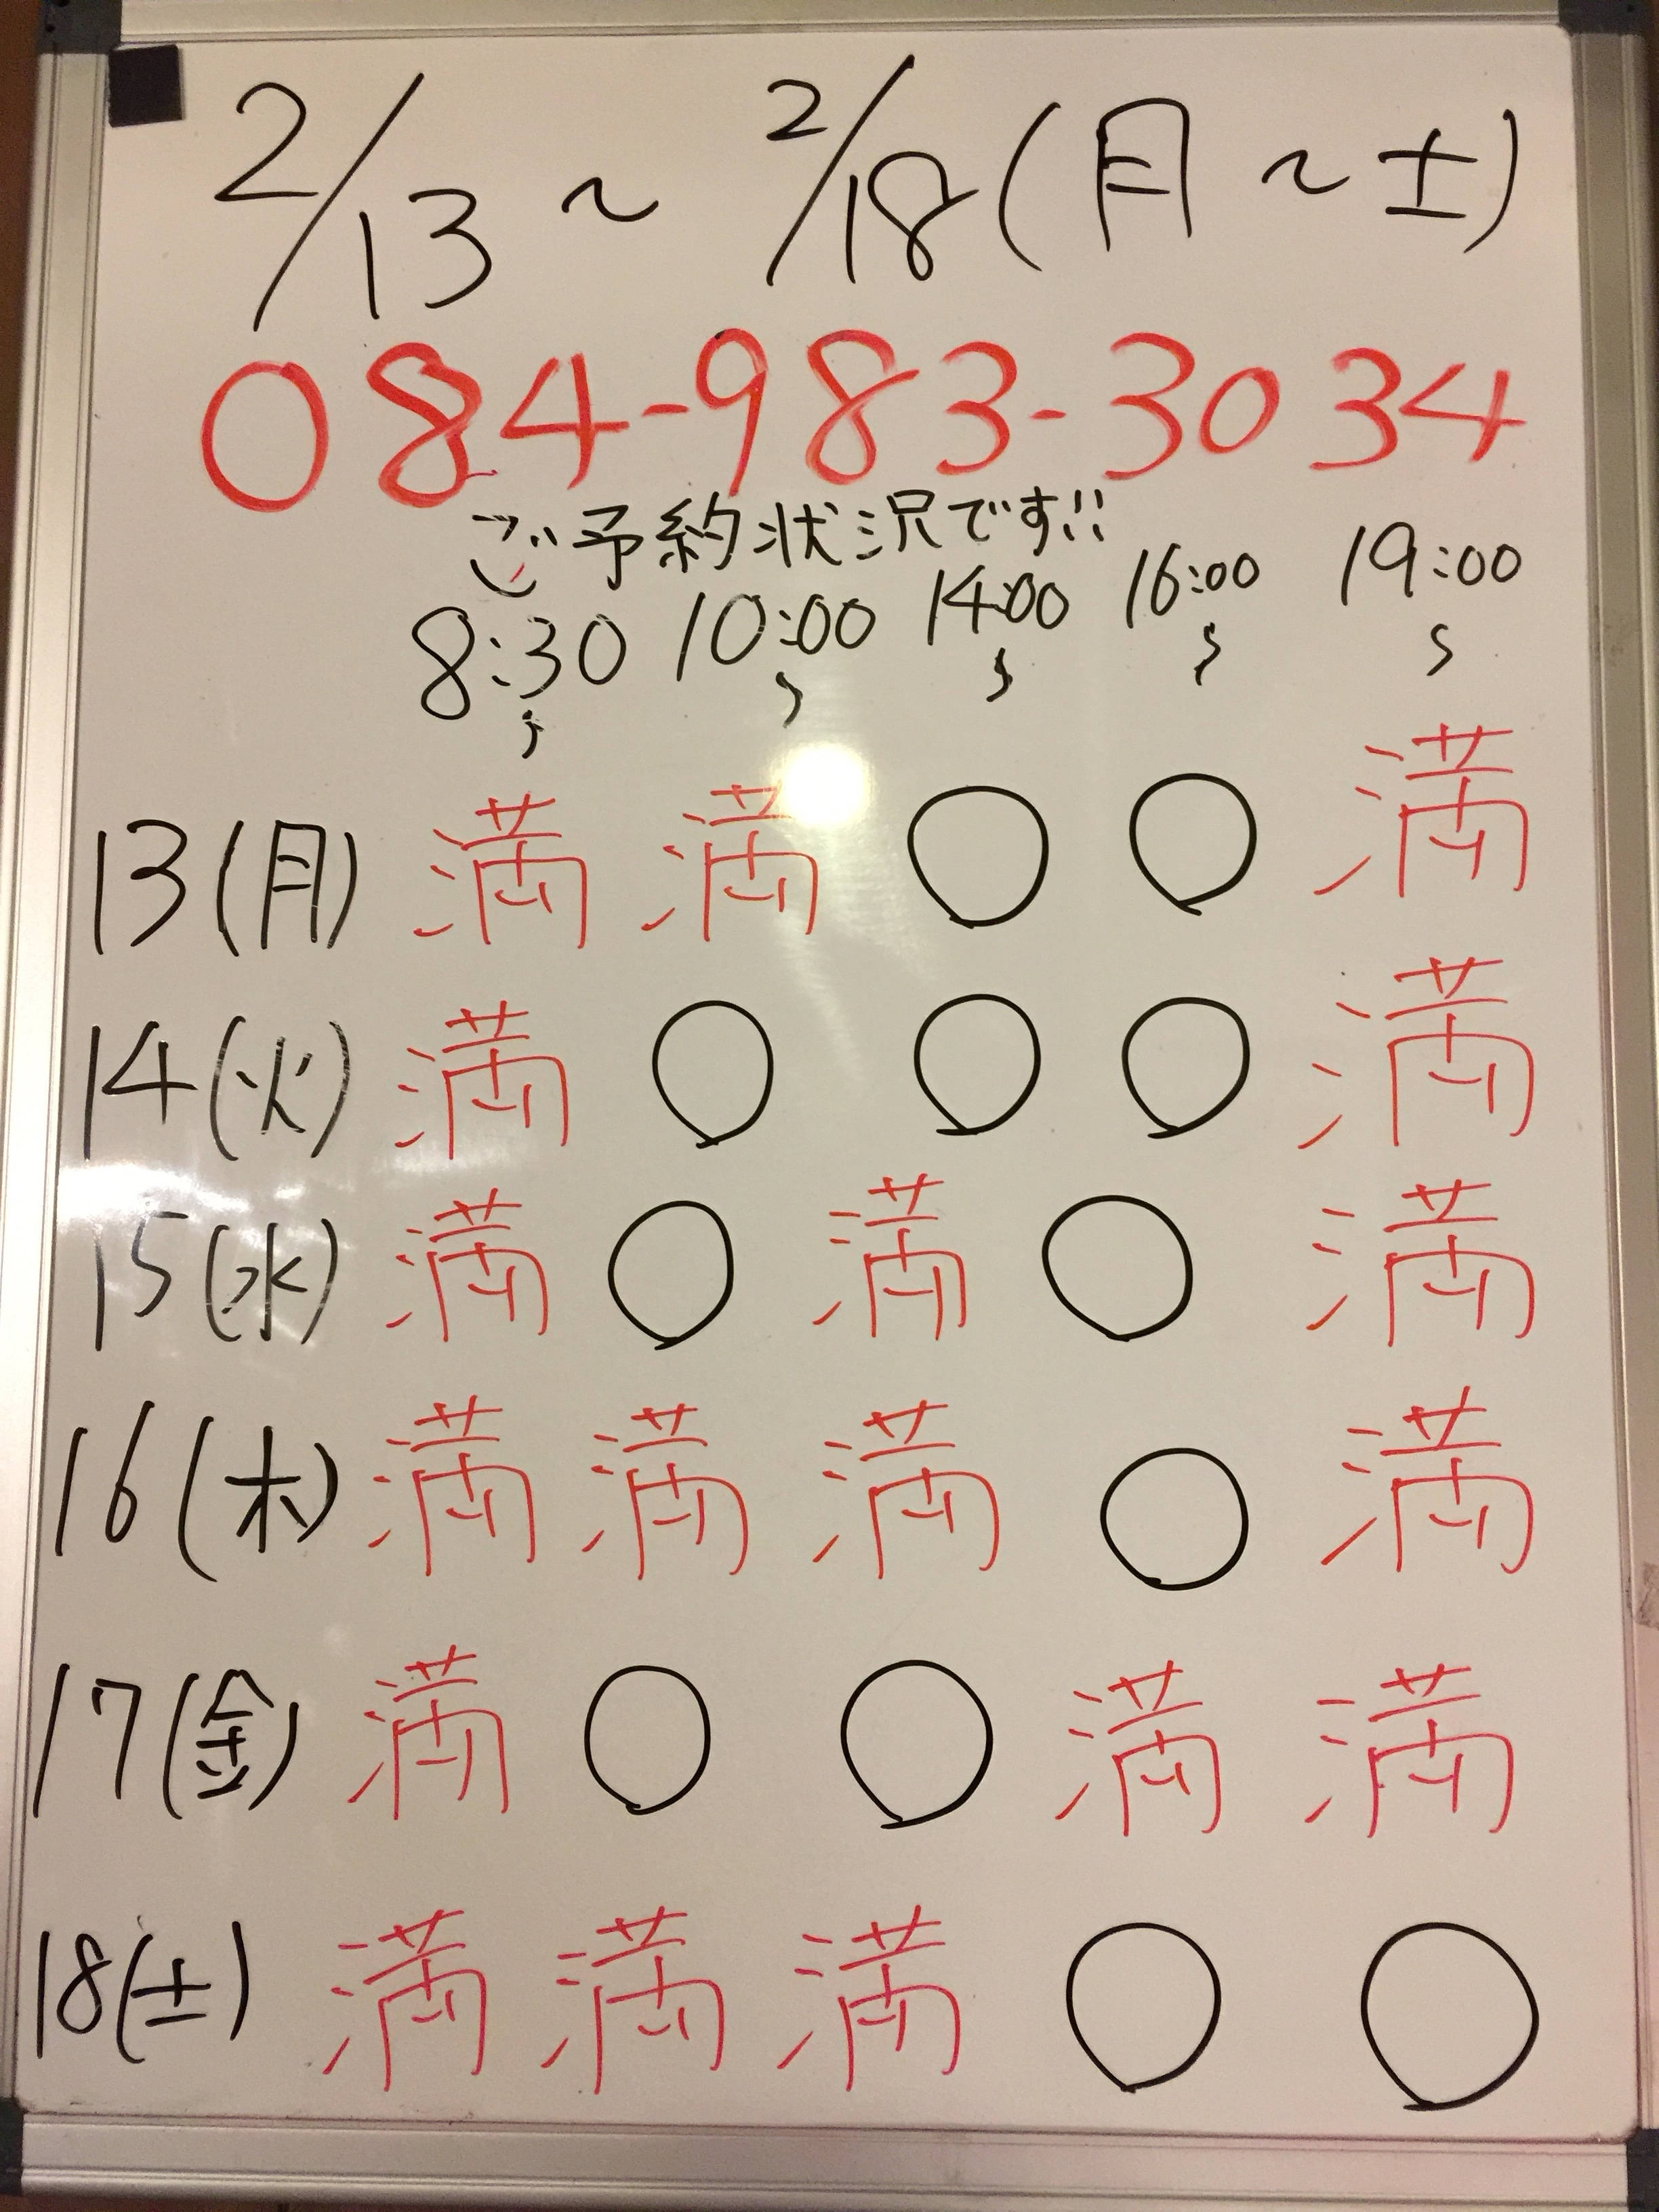 2/13 ~ 2/18 (月 ~ 土)
084-983-3034
ご予約状況です!!
8:30 10:00 14:00 16:00 19:00
~ ~ ~ ~ ~
13(月) 満 満 ○ ○ 満
14(火) 満 ○ ○ ○ 満
15(水) 満 ○ 満 ○ 満
16(木) 満 満 満 ○ 満
17(金) 満 ○ ○ 満 満
18(土) 満 満 満 ○ ○